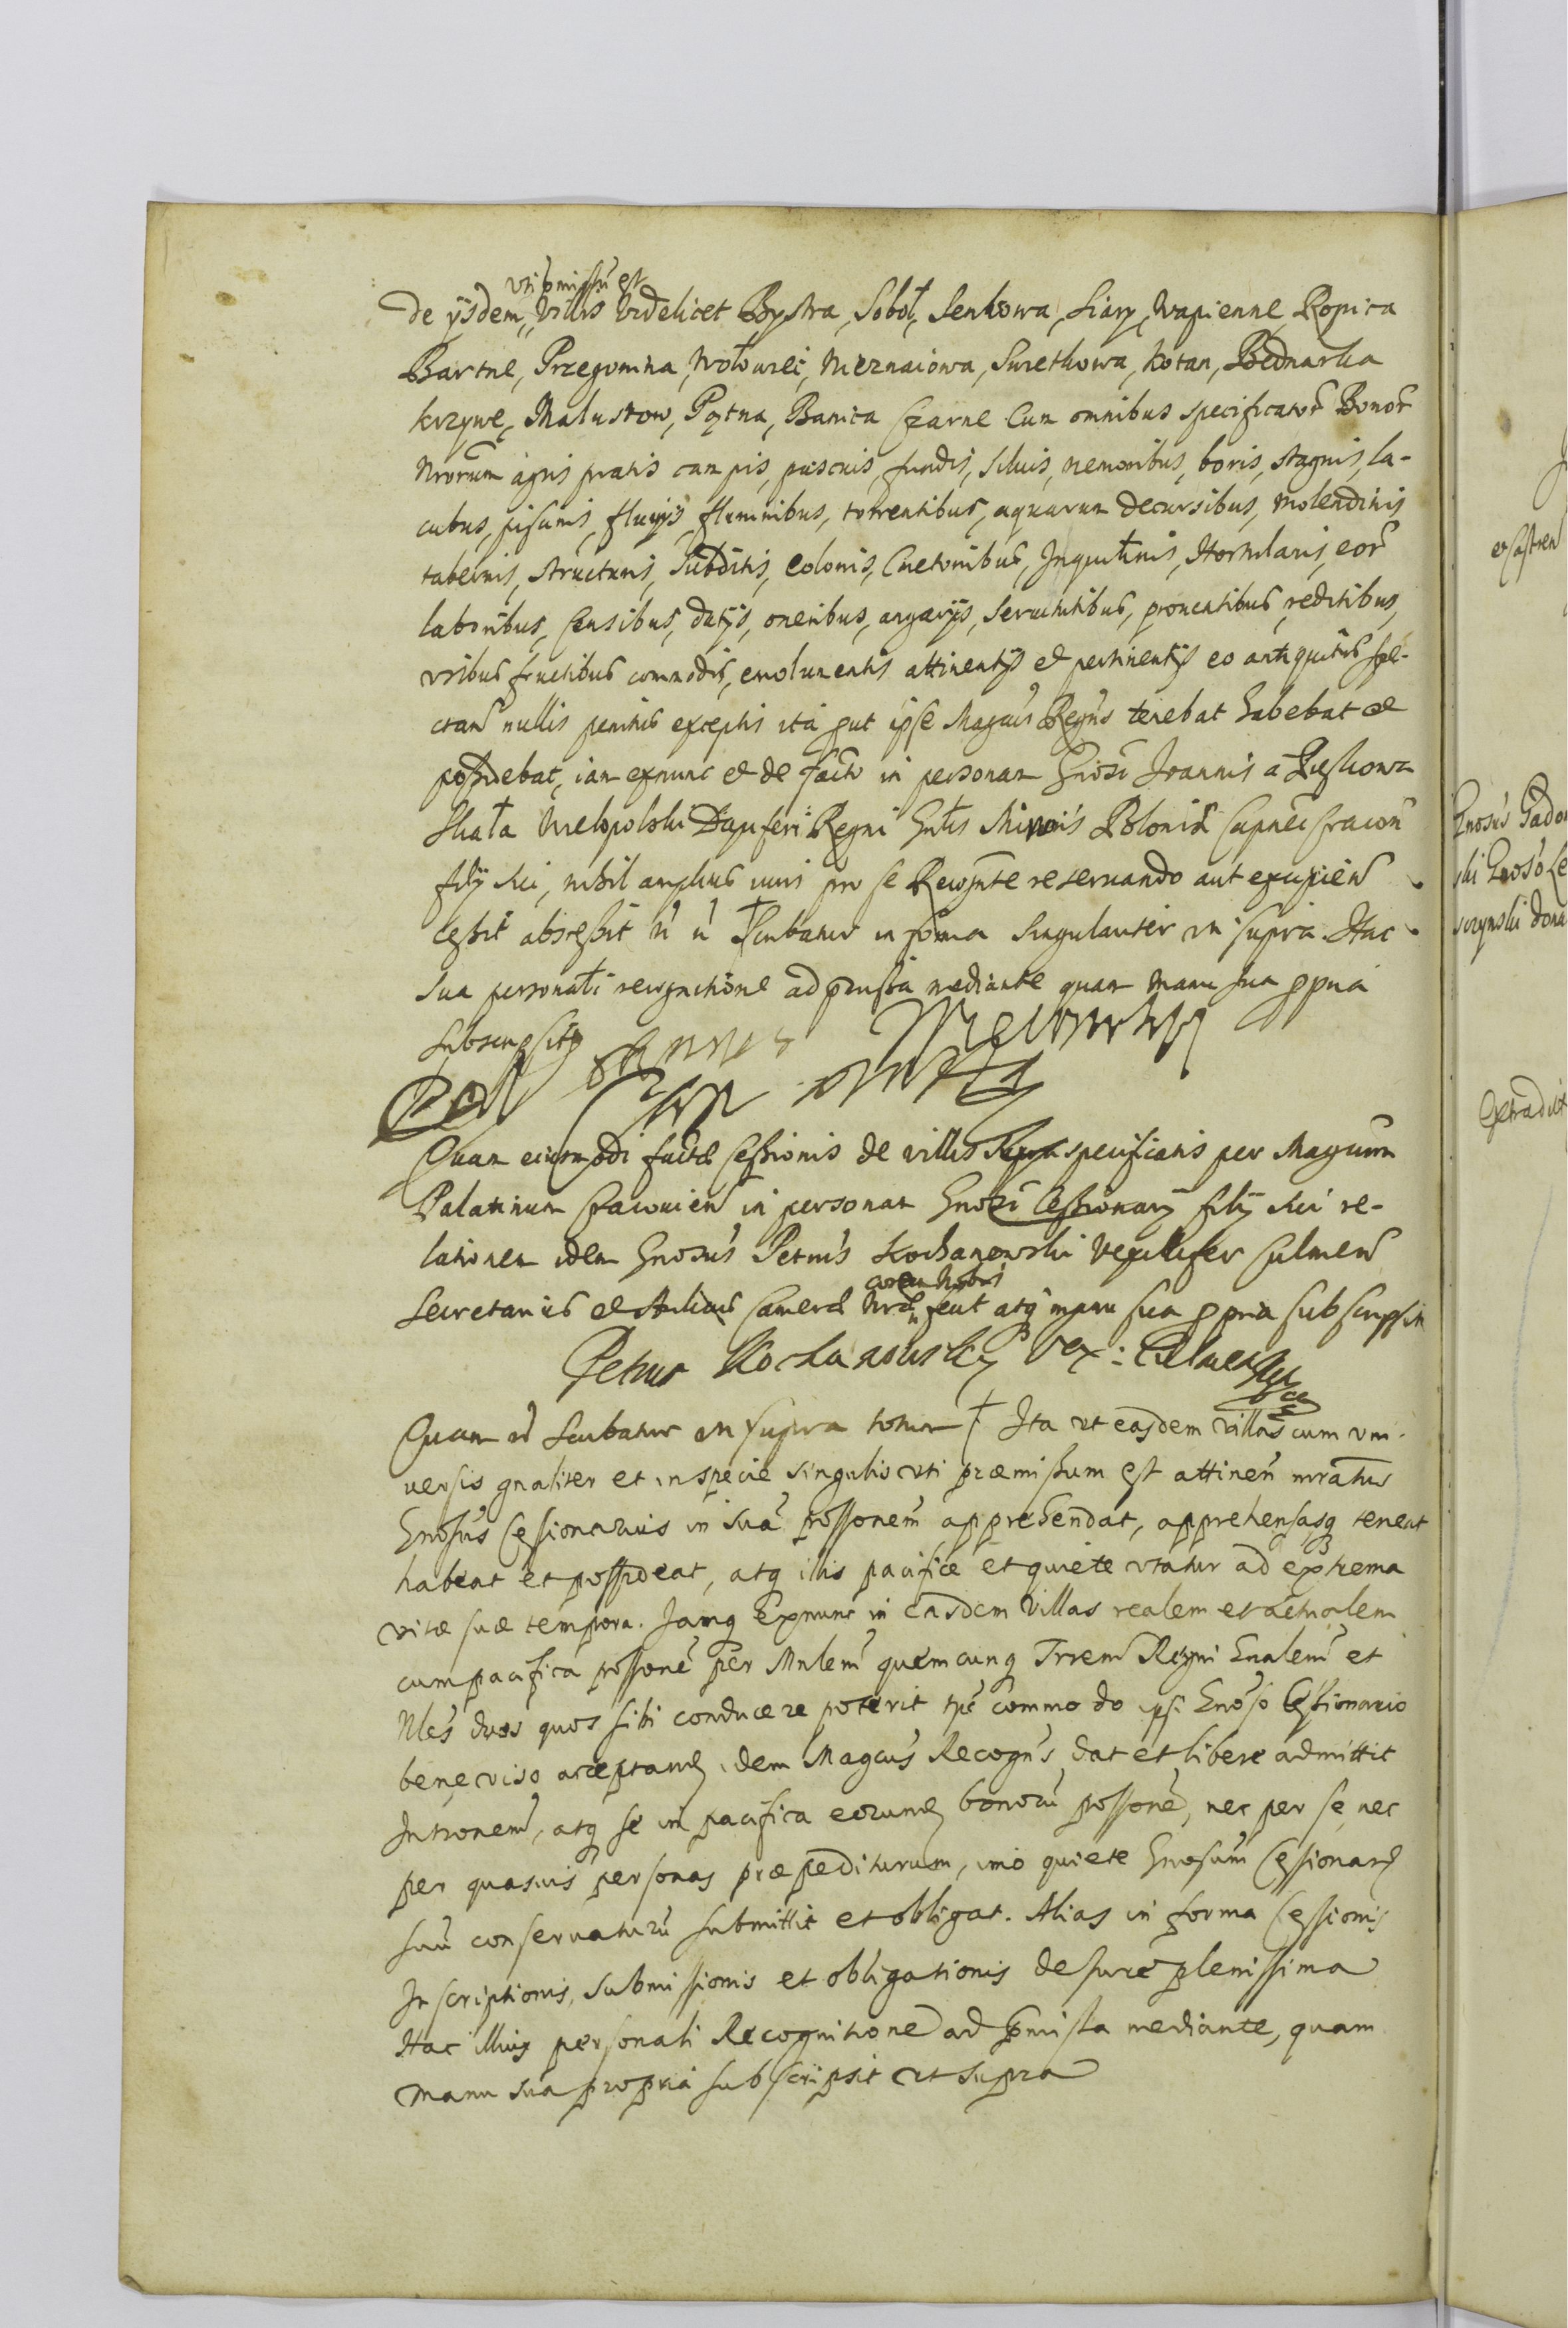 uti pmissu est
de ijsdem, villis videlicet Bystra, Sobol, Senkowa, Siary, Wapienne, Ropica
Bartne, Przegonina, Wołowiec, Nieznaiowa, Swietkowa, Kotan, Bednarka
Krzywe, Malustow, Pętna, Banica Czarne Cum omnibus specificator Bonor
Nrorum agris pratis campis, pascuis, fundis, siluis, nemoribus, boris, stagnis, la-
cubus, piscinis, fluuijs fluminibus, torrentibus, aquarum decursibus, molendinis
tabernis, structuris, subditis, colonis, Cmetonibus, Inquilinis, Hortulanis, eor
laboribus, Censibus, datijs, oneribus, angarijs, seruitutibus, prouentibus, reditibus,
usibus fructibus commodis, emolumentis attinentijs et pertinentijs eo antiquitus spe-
ctan nullis penitus exceptis ita put ipse Magcus Regns tenebat habebat et
possidebat, iam exnunc et de facto in personam Gnosi Joannis a
Wielopolski Dapiferi Regni Gnlis Minoris Poloniæ Capnei Cracou
filij sui, nihil amplius iuris pro se Recognte reseruando aut excipien
cessit abscessit Scribatur in forma singulariter uti supra Hac
sua personali recognitione ad pmissa mediante quam manu sua ppria
subscripsit
Joannes Wielopolski
Pal Crac
Quam eiusmodi factæ Cessionis de villis supra specificatis per Magcum
Palatinum Cracouien in personam Gnosi Cessionarij filij sui re-
lationem idem Gnosus Petrus Kochanowski Vexillifer Culmen
Secretarius et Aulicus Cameræ Nræ fecit atq manu sua ppria subscripsit
coram Nobis
Petrus Kochanowsky Vex: Culmen
Quam Scribatur uti supra Ita ut easdem villas cum uni-
uersis gnaliter et in specie singulis uti præmissum est attinen nratus
Gnosus Cessionarius in sua possonem apprehendat, apprehensasq teneat
habeat et possideat, atq illis pacifice et quiete utatur ad extrema
vitæ suæ tempora. Jamq Exnunc in easdem Villas realem et actualem
cum pacifica possone per Mnlem quemcunq Trrem Regni Gnalem et
Nles duos quos sibi conducere poterit tpe commodo ipsi Gnoso Cessionario
bene viso acceptand, idem Magcus Recogns dat et libere admittit
Intronem, atq se in pacifica eorund bonoru possone, nec per se, nec
per quasuis personas præpediturum, imo quiete Gnosum Cessionar
suu conseruaturu submittit et obligat. Alias in forma Cessionis
Inscriptionis, Submissionis et obligationis de Jure plenissima
Hac illius personali Recognitione ad pmissa mediante, quam
manu sua propria subscripsit ut supra
Gnosus
Gnoso
extradit